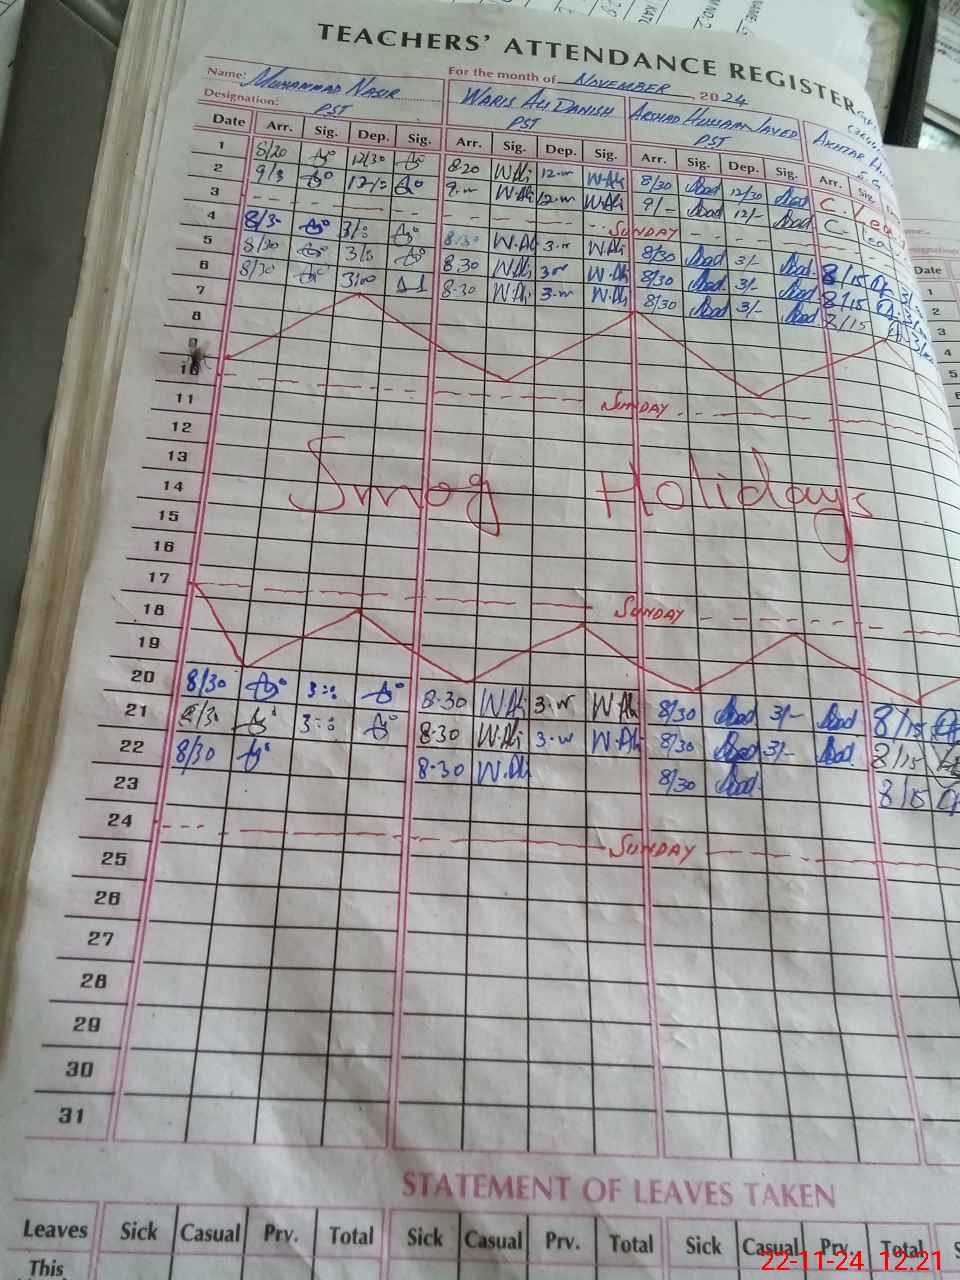 TEACHERS' ATTENDANCE REGISTER
Name: Muhammad Nasir For the month of November, 2024
Designation: PST Waris Ali Danish PST Arshad Hussain Javed PST Akhtar H.
Date Arr. Sig. Dep. Sig. Arr. Sig. Dep. Sig. Arr. Sig. Dep. Sig. Arr. Sig.
1 8/20 12/30 8-20 W.Ali 12-00 W.Ali 8/30 12/30 C. Leave
2 9/5 9-00 W.Ali 12-00 W.Ali 9/- 12/- C. Leave
3 SUNDAY
4 8/30 3/: W.Ali 3-00 W.Ali 8/30 3/- 8/15 3/
5 8/30 3/: 8.30 W.Ali W.Ali 8/30 3/- 8/15
6 8/30 3/00 8-30 W.Ali 3-00 W.Ali 8/30 3/- 8/15
7
8
9
10 SUNDAY
11
12
13
Smog Holidays
14
15
16
17 SUNDAY
18
19
20 8/30 8-30 W.Ali 3-00 W.Ali 8/30 3/- 8/15
21 8/30 8-30 W.Ali 3-00 W.Ali 8/30 3/- 8/15
22 8/30 8-30 W.Ali 8/30 8/15
23
24 SUNDAY
25
26
27
28
29
30
31
STATEMENT OF LEAVES TAKEN
Leaves Sick Casual Prv. Total Sick Casual Prv. Total Sick Casual Prv. Total S
This
Date
1
2
3
4
5
22-11-24 12.21